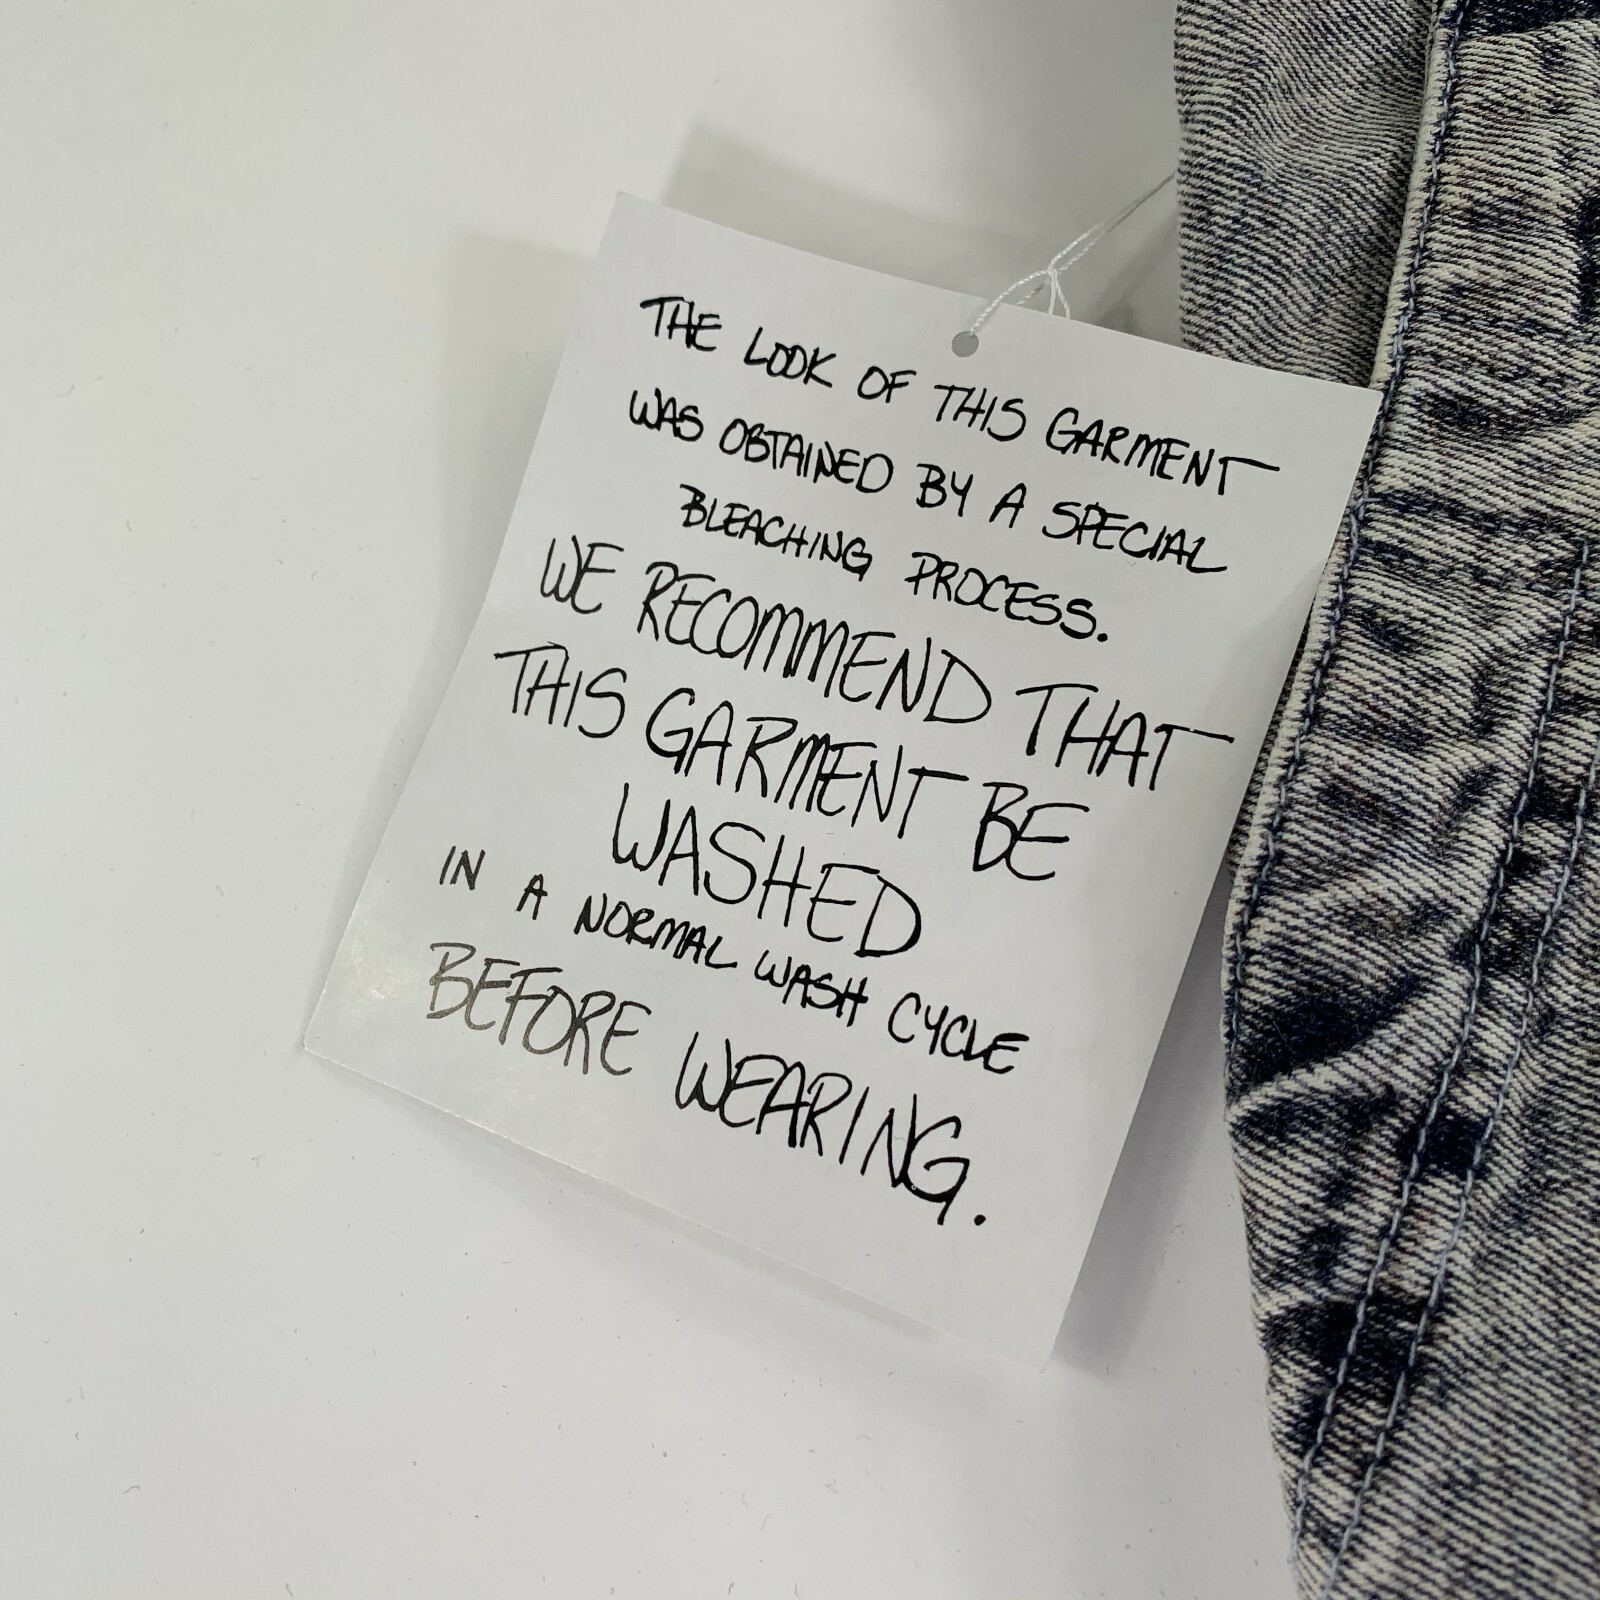 THE LOOK OF THIS GARMENT
WAS OBTAINED BY A SPECIAL
BLEACHING PROCESS.
WE RECOMMEND THAT
THIS GARMENT BE
WASHED
IN A NORMAL WASH CYCLE
BEFORE WEARING.